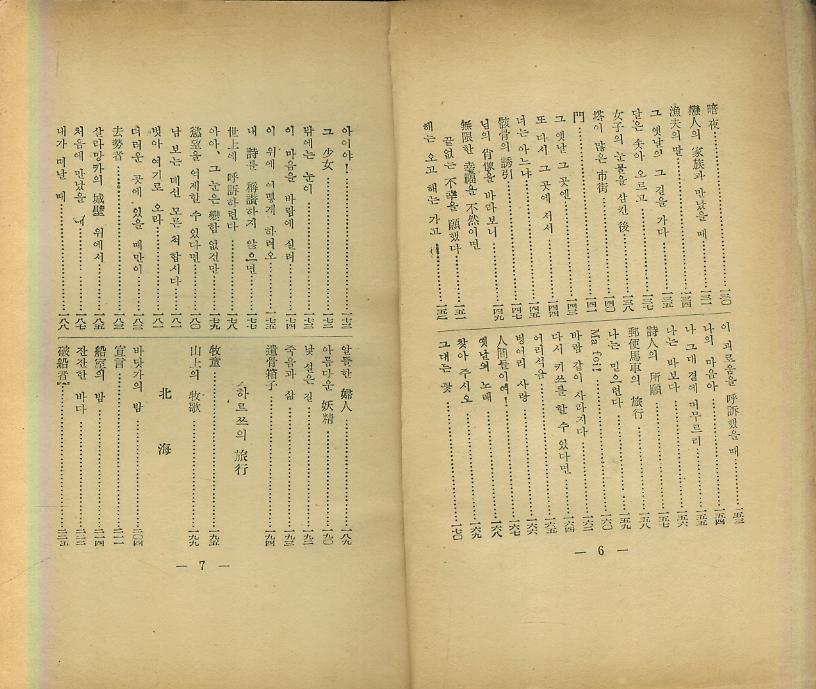 暗夜……一三〇
蠻人의 家族과 만났을 때……一三一
漁夫의 딸……一三四
그 옛날의 그 길을 가다……一三五
달은 솟아 오르고……一三七
女子의 눈물을 삼킨 後……一三八
塔이 많은 市街……一四〇
門……一四一
그 옛날 그 곳엔……一四三
또 다시 그 곳에 서서……一四四
너는 아느냐……一四五
骸骨의 誘引……一四七
님의 肖像을 바라보니……一四九
無限한 幸福을 不然이면
끝없는 不幸을 願했다……一五一
해는 오고 해는 가고……一五二
이 괴로움을 呼訴했을 때……一五三
나의 마음아……一五四
나 그대 곁에 머무르리……一五五
나는 바보다……一五六
詩人의 所願……一五七
郵便馬車의 旅行……一五八
나는 믿으련다……一五九
Ma foi!……一六〇
바람 같이 사라지다……一六二
다시 키쓰를 할 수 있다면……一六四
어리석음……一六五
벙어리 사랑……一六六
人間들이여!……一六七
옛날의 노래……一六八
찾아 주시오……一六九
그대는 꽃……一七〇
— 6 —
아이야!……一七二
그 少女……一七三
밖에는 눈이……一七三
이 마음을 바람에 실러……一七四
이 위에 어떻게 하려오……一七五
내 詩를 稱讚하지 않으면……一七七
世上에 呼訴하련다……一七八
아아, 그 눈은 變함 없건만……一七九
慾望을 억제할 수 있다면……一八〇
남 보는 데선 모른 척 합시다……一八一
벗아 여기로 오라……一八二
더러운 곳에 있을 때만이……一八三
去勢者……一八三
살라망카의 城壁 위에서……一八五
처음에 만났을 때……一八七
내가 떠날 때……一八八
알뜰한 婦人……一八九
아름다운 妖精……一九〇
낯 설은 길……一九二
죽음과 삶……一九三
遺骨箱子……一九四
하르쯔의 旅行
牧童……一九五
山上의 牧歌……一九九
北海
바닷가의 밤……二〇四
宣言……二一一
船室의 밤……二一四
잔잔한 바다……二二二
破船者……二二五
— 7 —